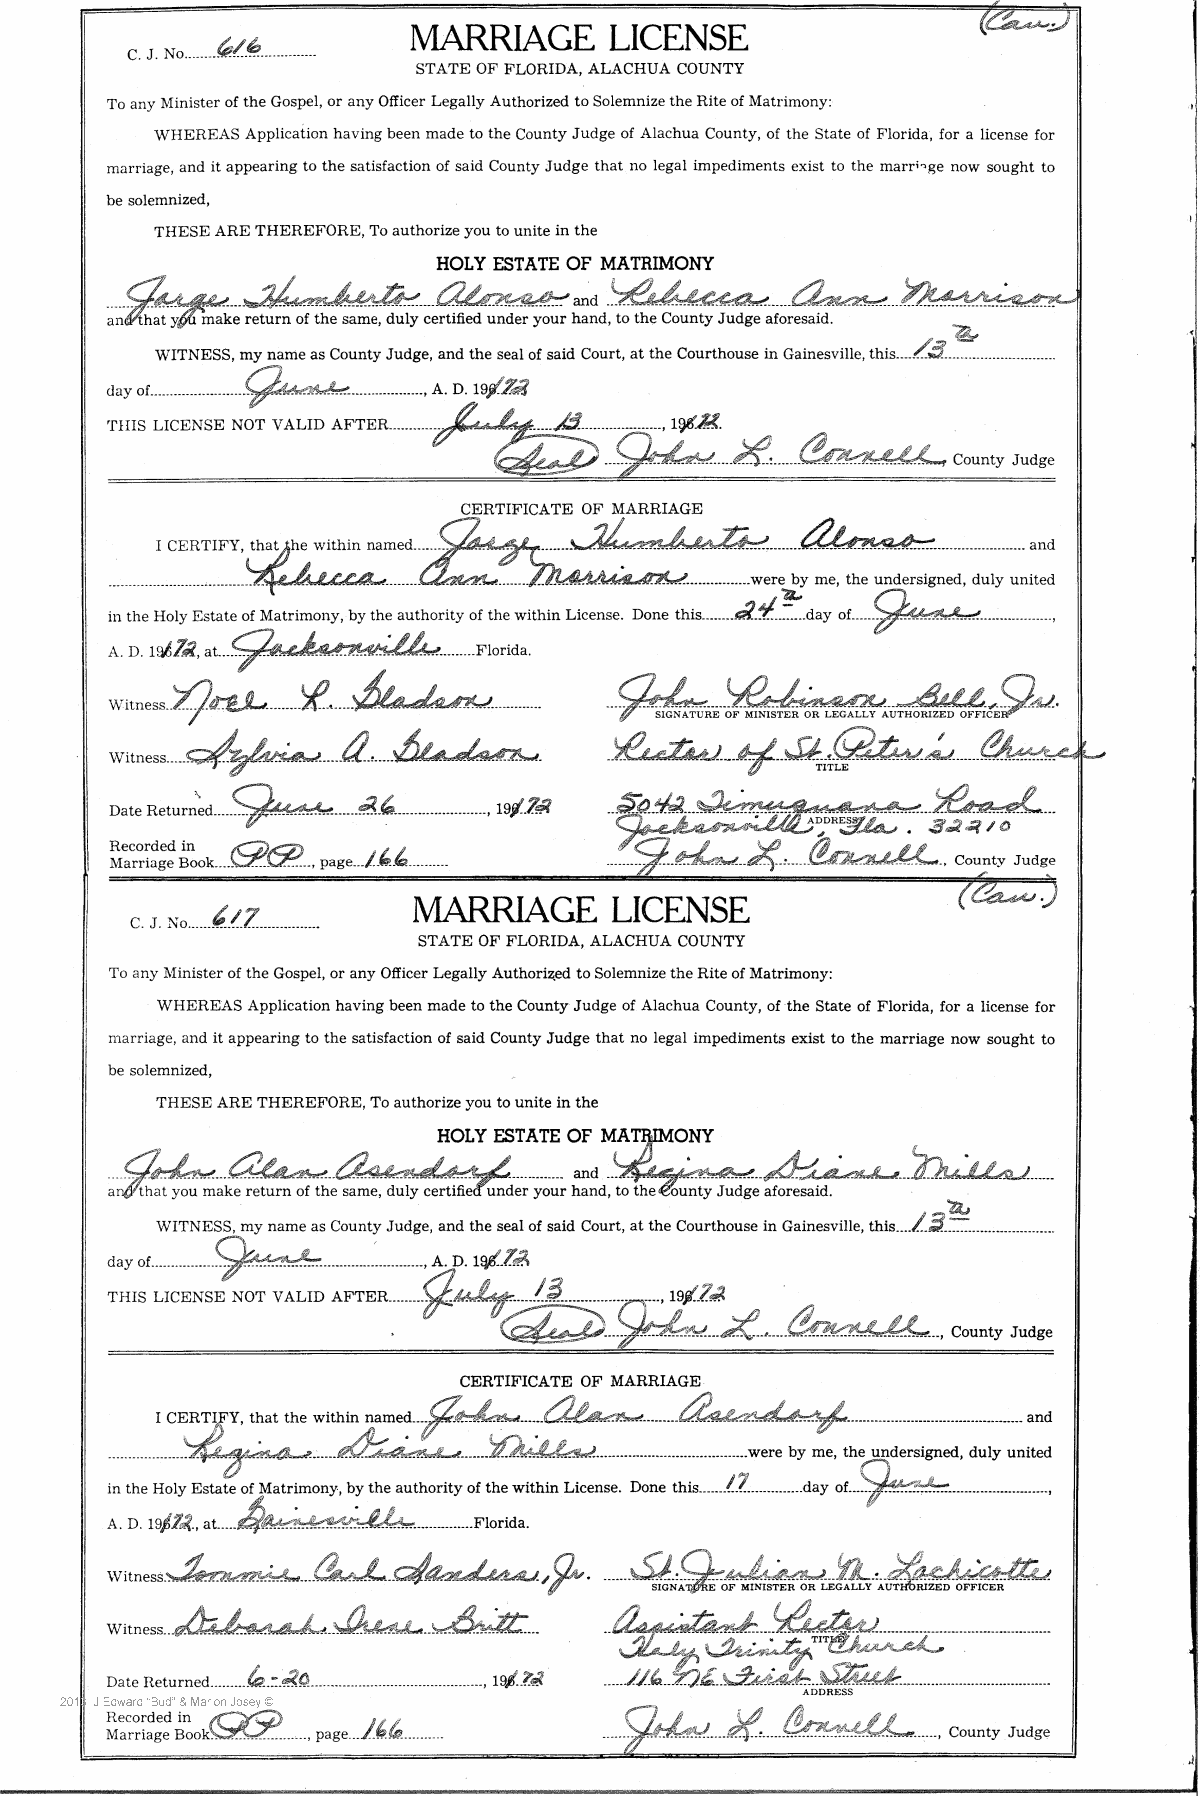 (Cau.)
C. J. No. 616
MARRIAGE LICENSE
STATE OF FLORIDA, ALACHUA COUNTY
To any Minister of the Gospel, or any Officer Legally Authorized to Solemnize the Rite of Matrimony:
WHEREAS Application having been made to the County Judge of Alachua County, of the State of Florida, for a license for
marriage, and it appearing to the satisfaction of said County Judge that no legal impediments exist to the marriage now sought to
be solemnized,
THESE ARE THEREFORE, To authorize you to unite in the
HOLY ESTATE OF MATRIMONY
Jorge Humberto Alonso and Rebecca Ann Morrison
and that you make return of the same, duly certified under your hand, to the County Judge aforesaid.
WITNESS, my name as County Judge, and the seal of said Court, at the Courthouse in Gainesville, this 13th
day of June, A. D. 1972
THIS LICENSE NOT VALID AFTER July 13, 1972.
(Seal) John L. Connell, County Judge
CERTIFICATE OF MARRIAGE
I CERTIFY, that the within named Jorge Humberto Alonso and
Rebecca Ann Morrison were by me, the undersigned, duly united
in the Holy Estate of Matrimony, by the authority of the within License. Done this 24th day of June,
A. D. 1972, at Jacksonville Florida.
Witness Noel R. Gladson John Robinson Bell, Jr.
SIGNATURE OF MINISTER OR LEGALLY AUTHORIZED OFFICER
Witness Sylvia A. Gladson Rector of St. Peter's Church
TITLE
Date Returned June 26, 1972 5042 Timuquana Road
ADDRESS
Jacksonville, Fla. 32210
Recorded in
Marriage Book PP, page 166 John L. Connell, County Judge
(Cau.)
C. J. No. 617
MARRIAGE LICENSE
STATE OF FLORIDA, ALACHUA COUNTY
To any Minister of the Gospel, or any Officer Legally Authorized to Solemnize the Rite of Matrimony:
WHEREAS Application having been made to the County Judge of Alachua County, of the State of Florida, for a license for
marriage, and it appearing to the satisfaction of said County Judge that no legal impediments exist to the marriage now sought to
be solemnized,
THESE ARE THEREFORE, To authorize you to unite in the
HOLY ESTATE OF MATRIMONY
John Alan Asendorf and Regina Diane Mills
and that you make return of the same, duly certified under your hand, to the County Judge aforesaid.
WITNESS, my name as County Judge, and the seal of said Court, at the Courthouse in Gainesville, this 13th
day of June, A. D. 1972
THIS LICENSE NOT VALID AFTER July 13, 1972
(Seal) John L. Connell, County Judge
CERTIFICATE OF MARRIAGE
I CERTIFY, that the within named John Alan Asendorf and
Regina Diane Mills were by me, the undersigned, duly united
in the Holy Estate of Matrimony, by the authority of the within License. Done this 17 day of June,
A. D. 1972, at Gainesville Florida.
Witness Tommie Carl Sanders, Jr. St. Julian M. Lachicotte
SIGNATURE OF MINISTER OR LEGALLY AUTHORIZED OFFICER
Witness Deborah Irene Britt Assistant Rector
TITLE
Holy Trinity Church
Date Returned 6-20, 1972 116 NE First Street
ADDRESS
J Edward "Bud" & Marion Josey ©
Recorded in
Marriage Book PP, page 166 John L. Connell, County Judge